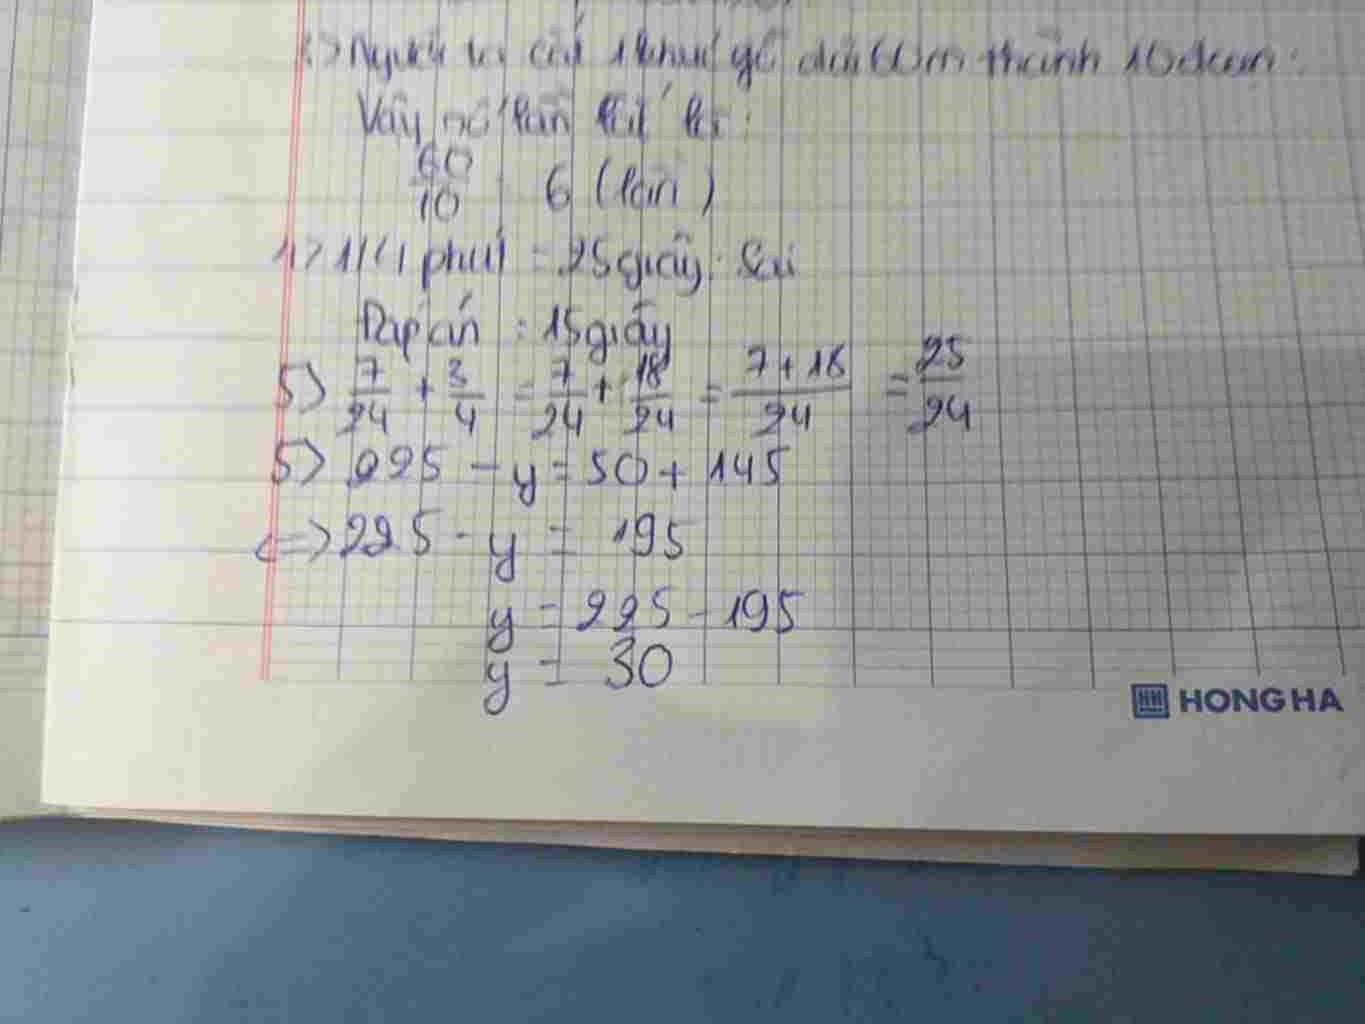 Người ta cắt 1 khúc gỗ dài 60m thành 10 đoạn:
Vậy số lần cắt là:
60/10 = 6 (lần)
1> 1/4 phút = 25 giây: Sai
Đáp án: 15 giây
5> 7/24 + 3/4 = 7/24 + 18/24 = 7+18/24 = 25/24
5> 225 - y = 50 + 145
<=> 225 - y = 195
y = 225 - 195
y = 30
HONG HA